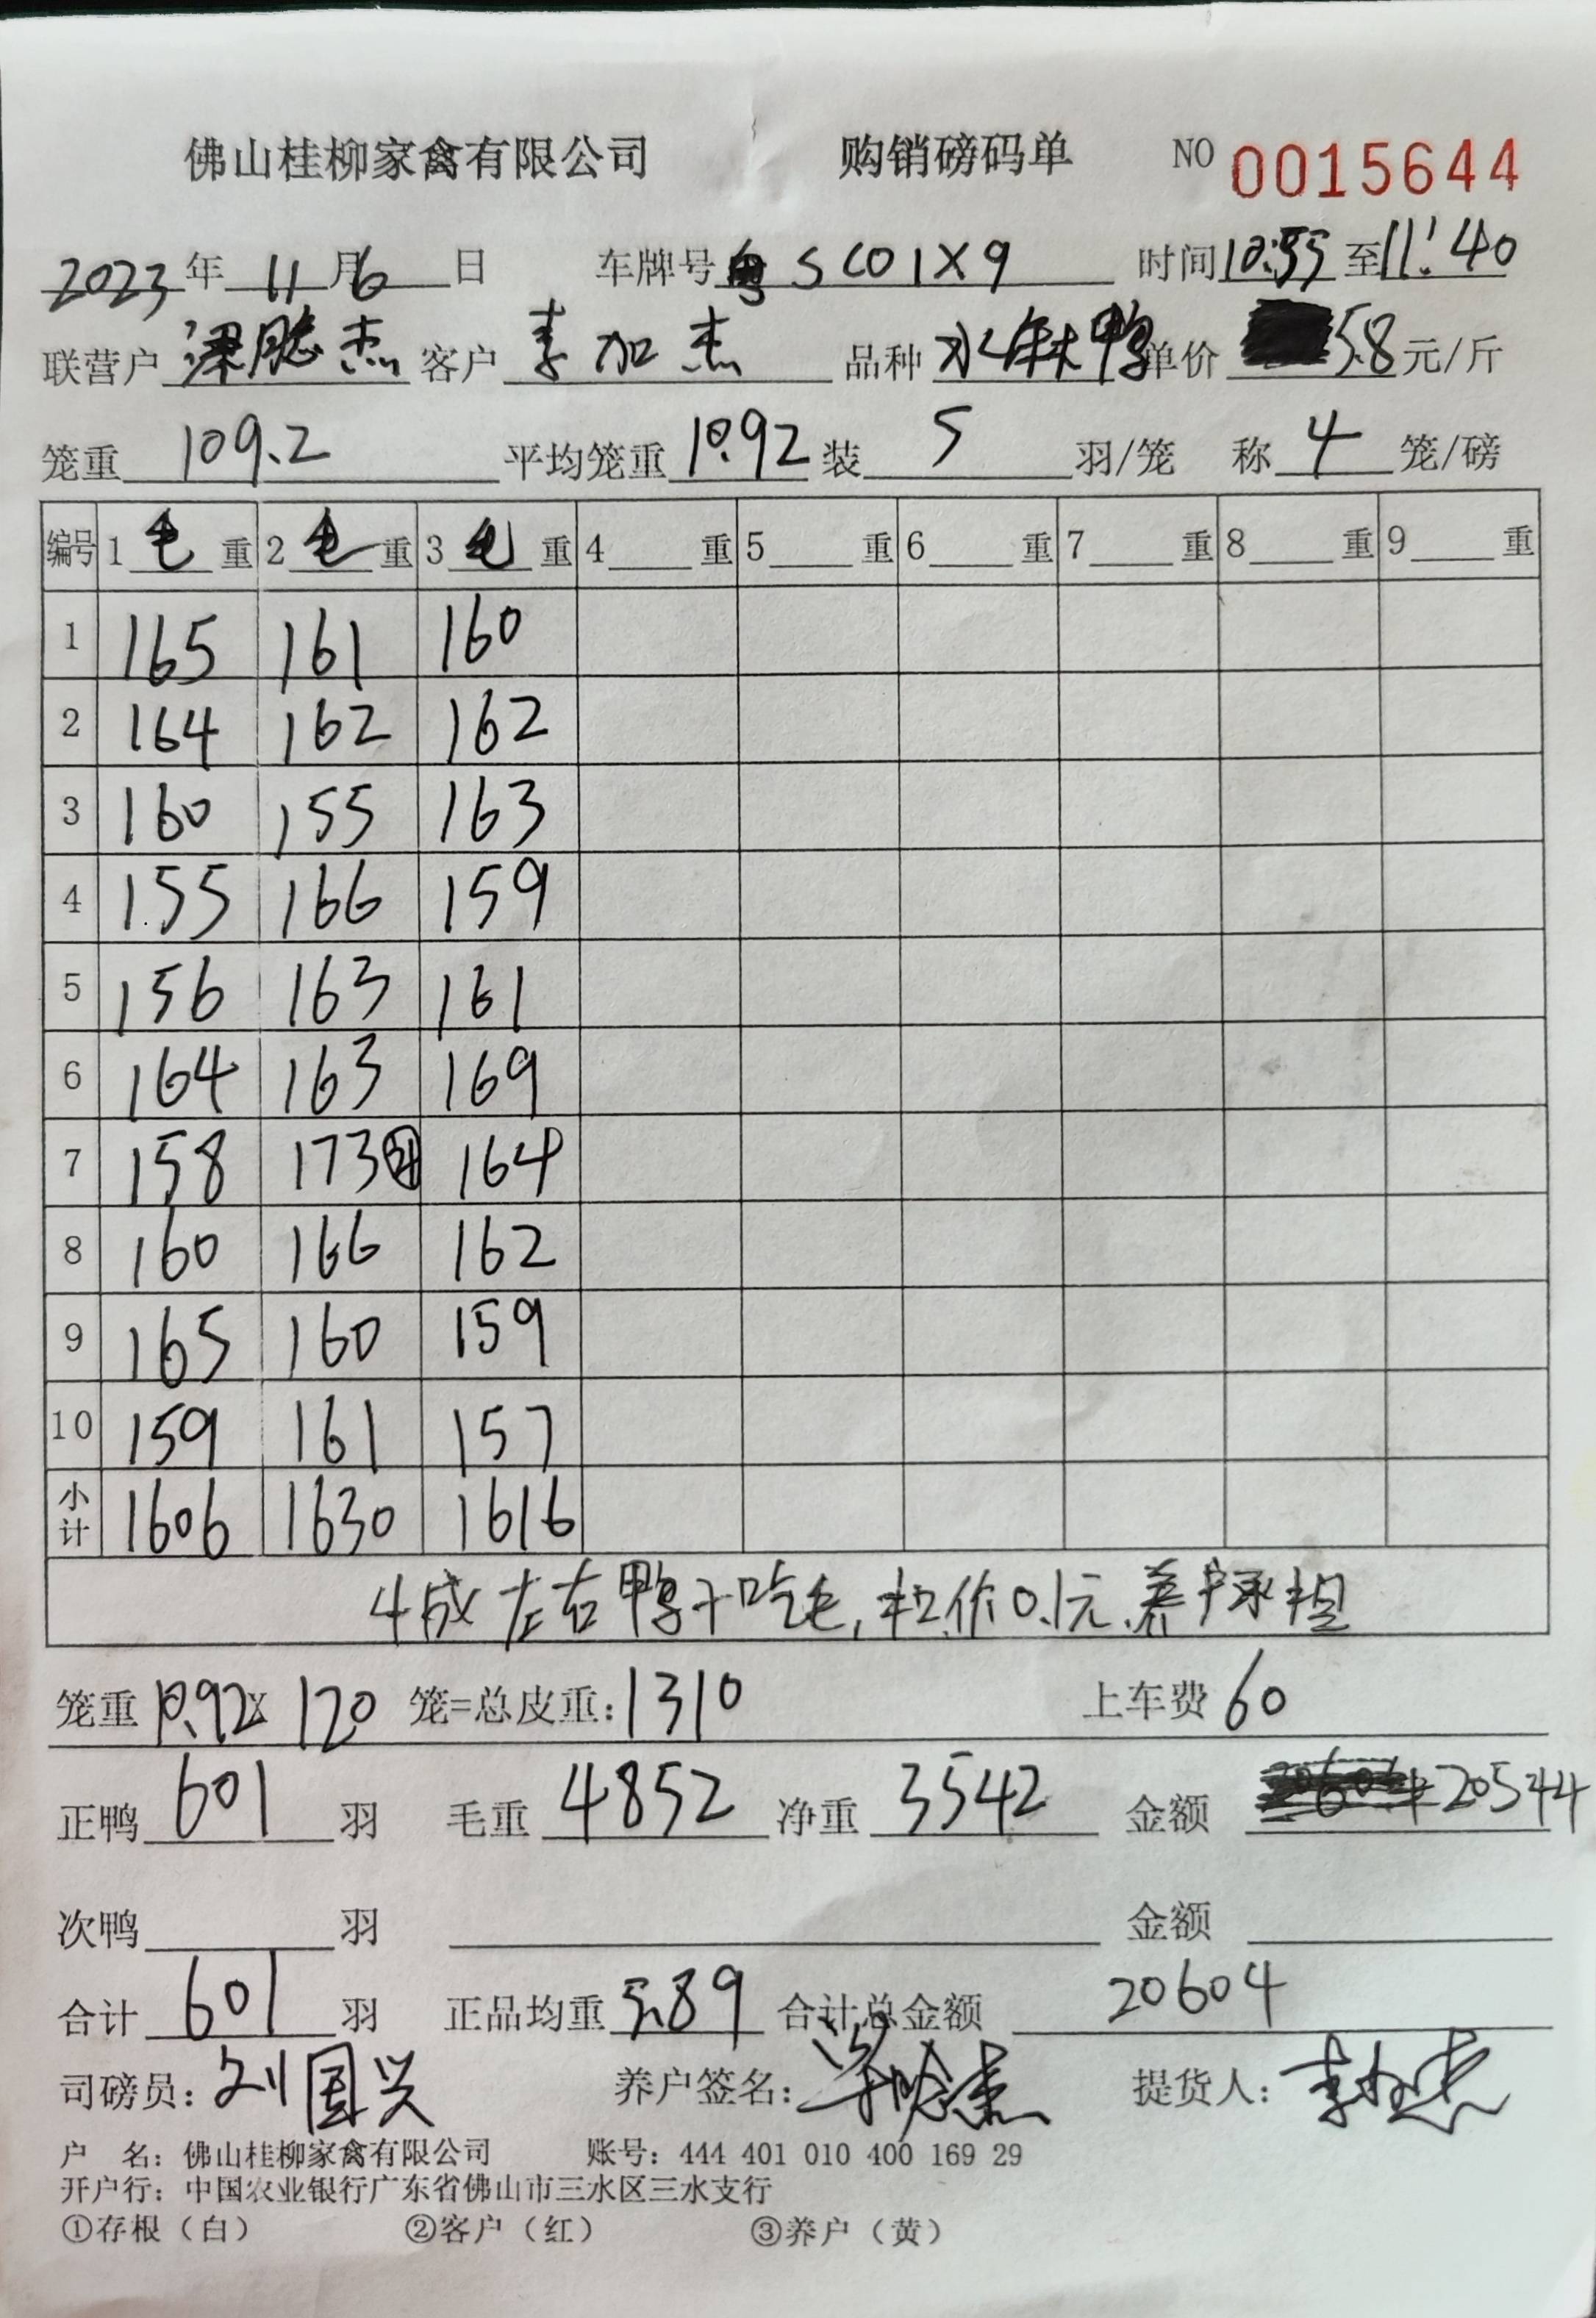 佛山桂柳家禽有限公司 购销磅码单 NO 0015644
2023年11月6日 车牌号粤SC01X9 时间10:55至11:40
联营户梁聪杰 客户李加杰 品种水 鸭 单价5.8元/斤
笼重109.2 平均笼重10.92 装5羽/笼 称4笼/磅
编号 1毛重 2毛重 3毛重 4重 5重 6重 7重 8重 9重
1 165 161 160
2 164 162 162
3 160 155 163
4 155 166 159
5 156 163 161
6 164 163 169
7 158 173 164
8 160 166 162
9 165 160 159
10 159 161 157
小计 1606 1630 1616
4成左右鸭子吃毛,扣价0.1元.养户承担
笼重10.92x120笼=总皮重:1310 上车费60
正鸭601羽 毛重4852 净重3542 金额20544
次鸭羽 金额
合计601羽 正品均重5.89 合计总金额20604
司磅员:刘国兴 养户签名:梁聪杰 提货人:李加杰
户 名:佛山桂柳家禽有限公司 账号:444 401 010 400 169 29
开户行:中国农业银行广东省佛山市三水区三水支行
①存根(白) ②客户(红) ③养户(黄)